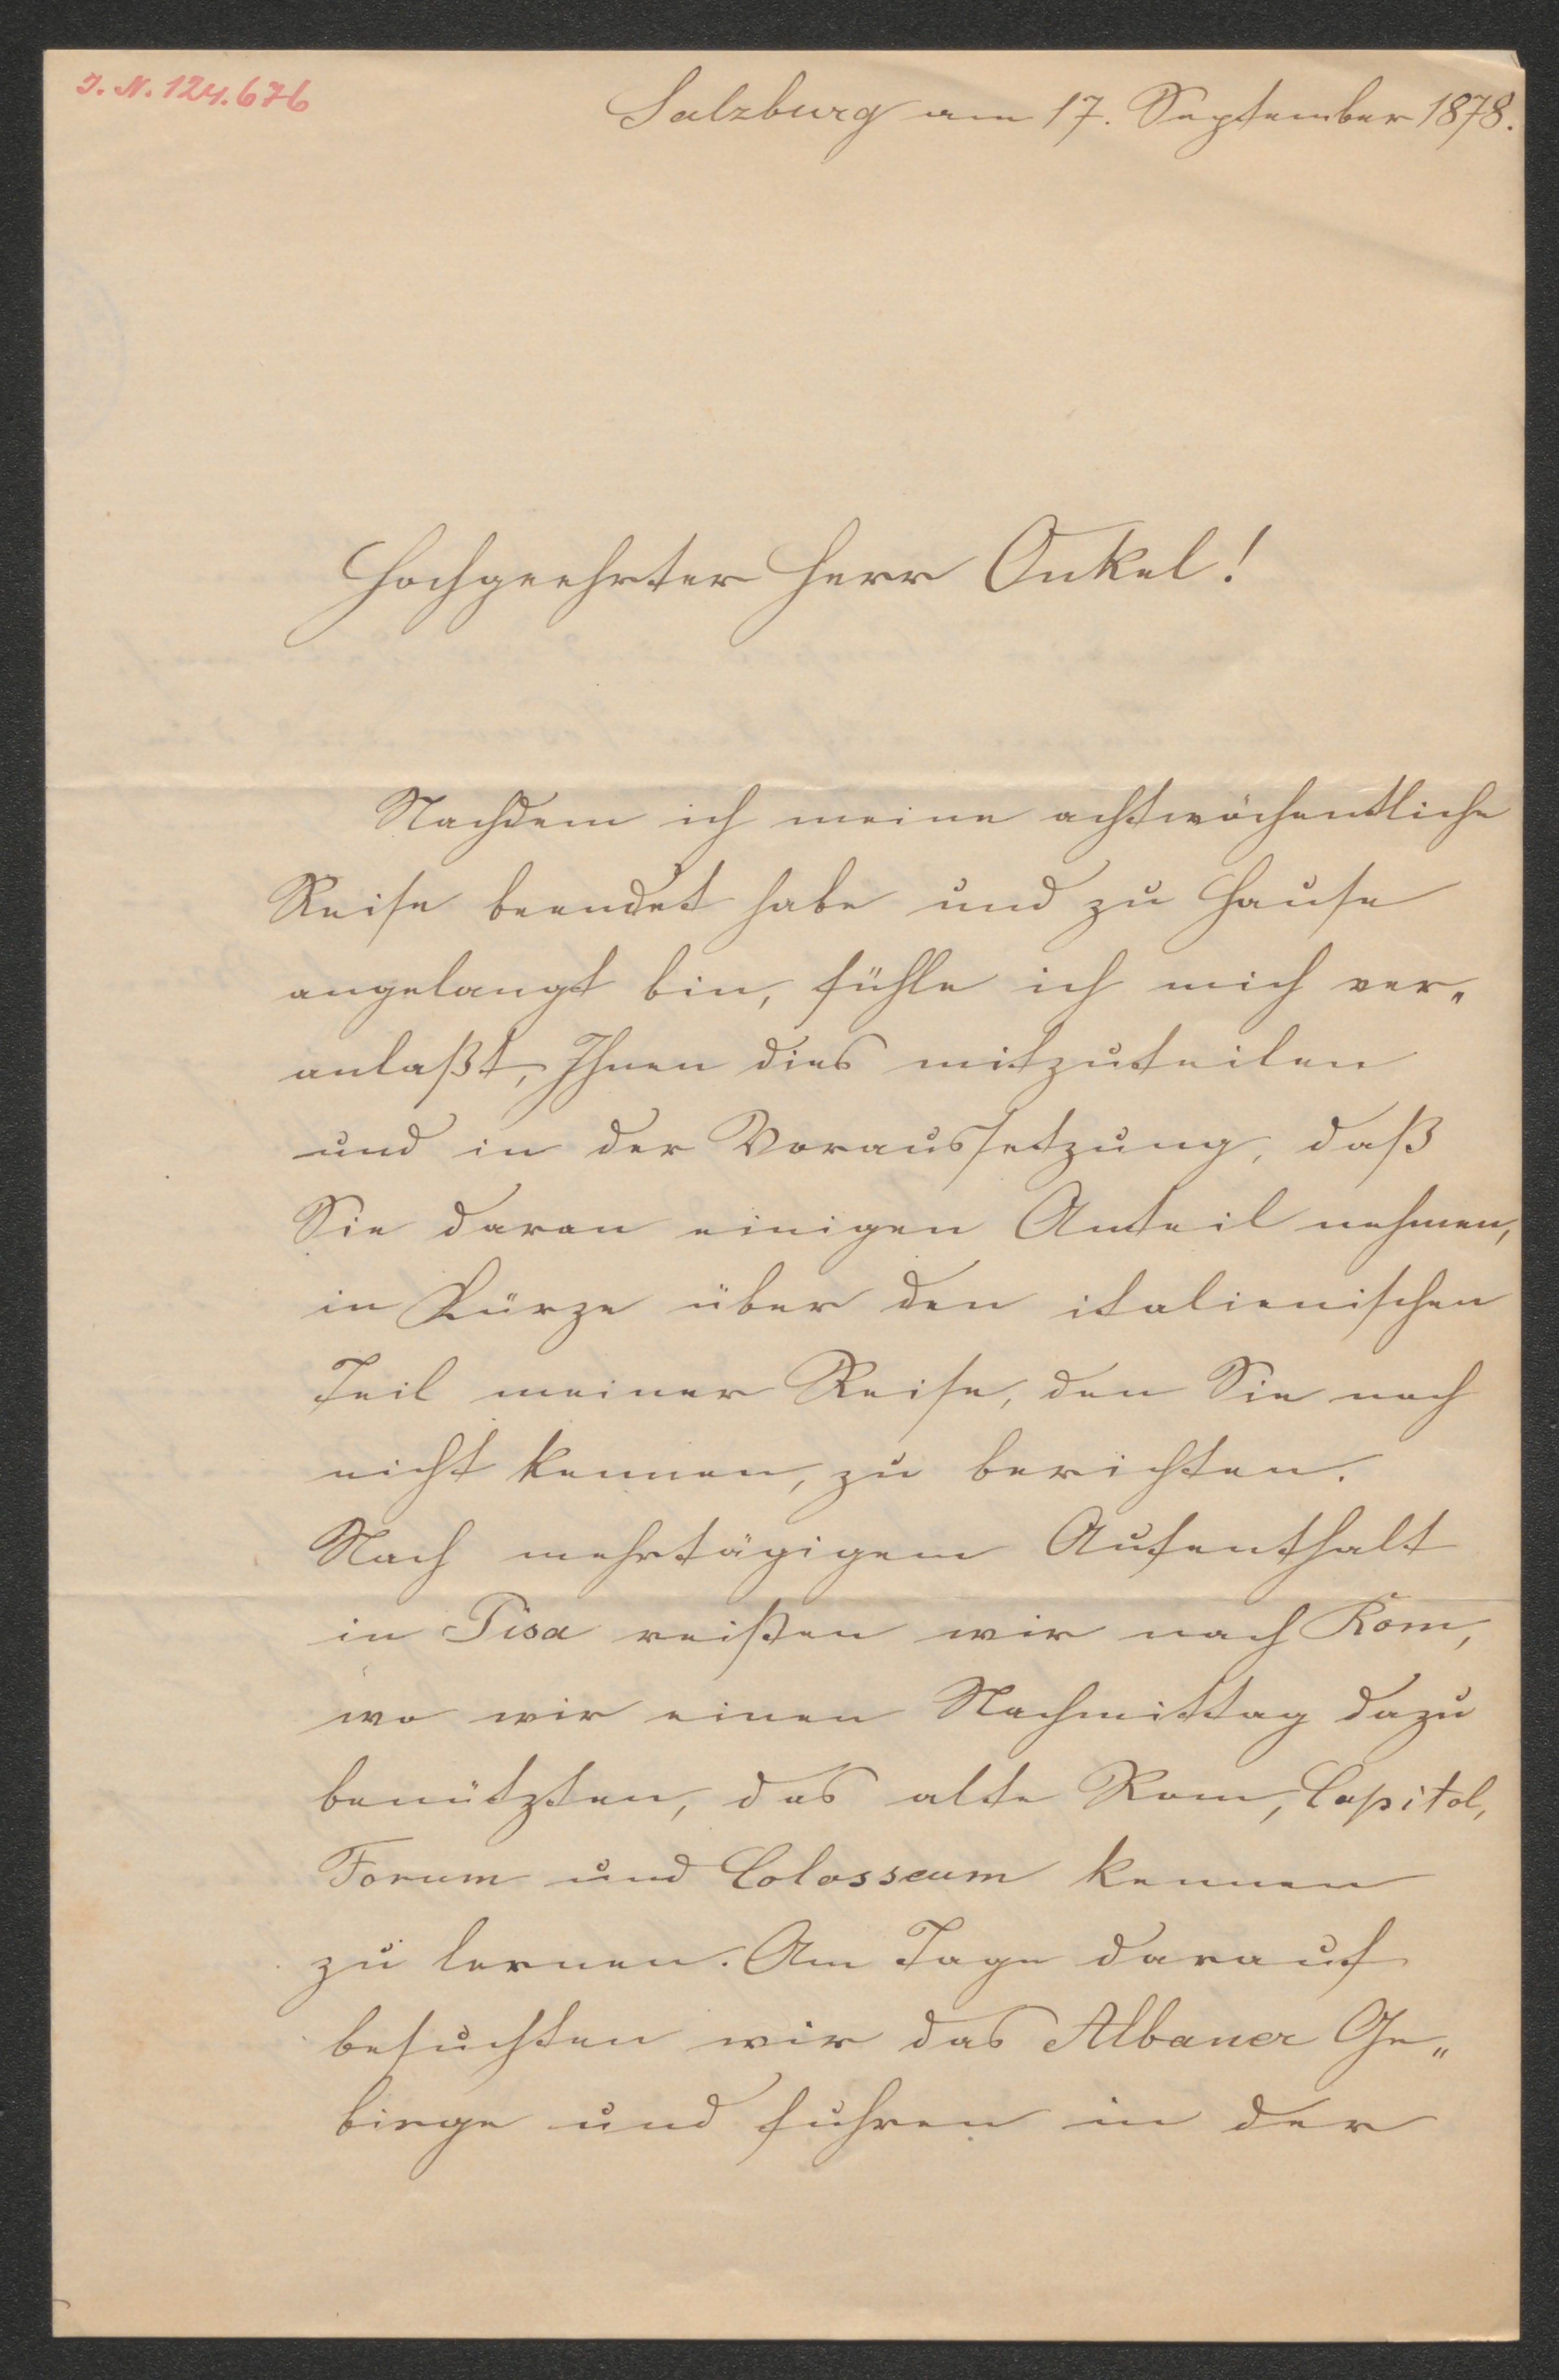 J. N. 124.676
Salzburg am 17. September 1878.
Hochgeehrter Herr Onkel!
Nachdem ich meine achtwöchentliche
Reise beendet habe und zu Hause
angelangt bin, fühle ich mich ver„
anlaßt, Ihnen dies mitzuteilen
und in der Voraussetzung, daß
Sie daran einigen Anteil nehmen,
in Kürze über den italienischen
Teil meiner Reise, den Sie noch
nicht kennen, zu berichten.
Nach mehrtägigem Aufenthalt
in Pisa reisten wir nach Rom,
wo wir einen Nachmittag dazu
benützten, das alte Rom, Capitol,
Forum und Colosseum kennen
zu lernen. Am Tage darauf
besuchten wir das Albaner Ge„
birge und fuhren in der